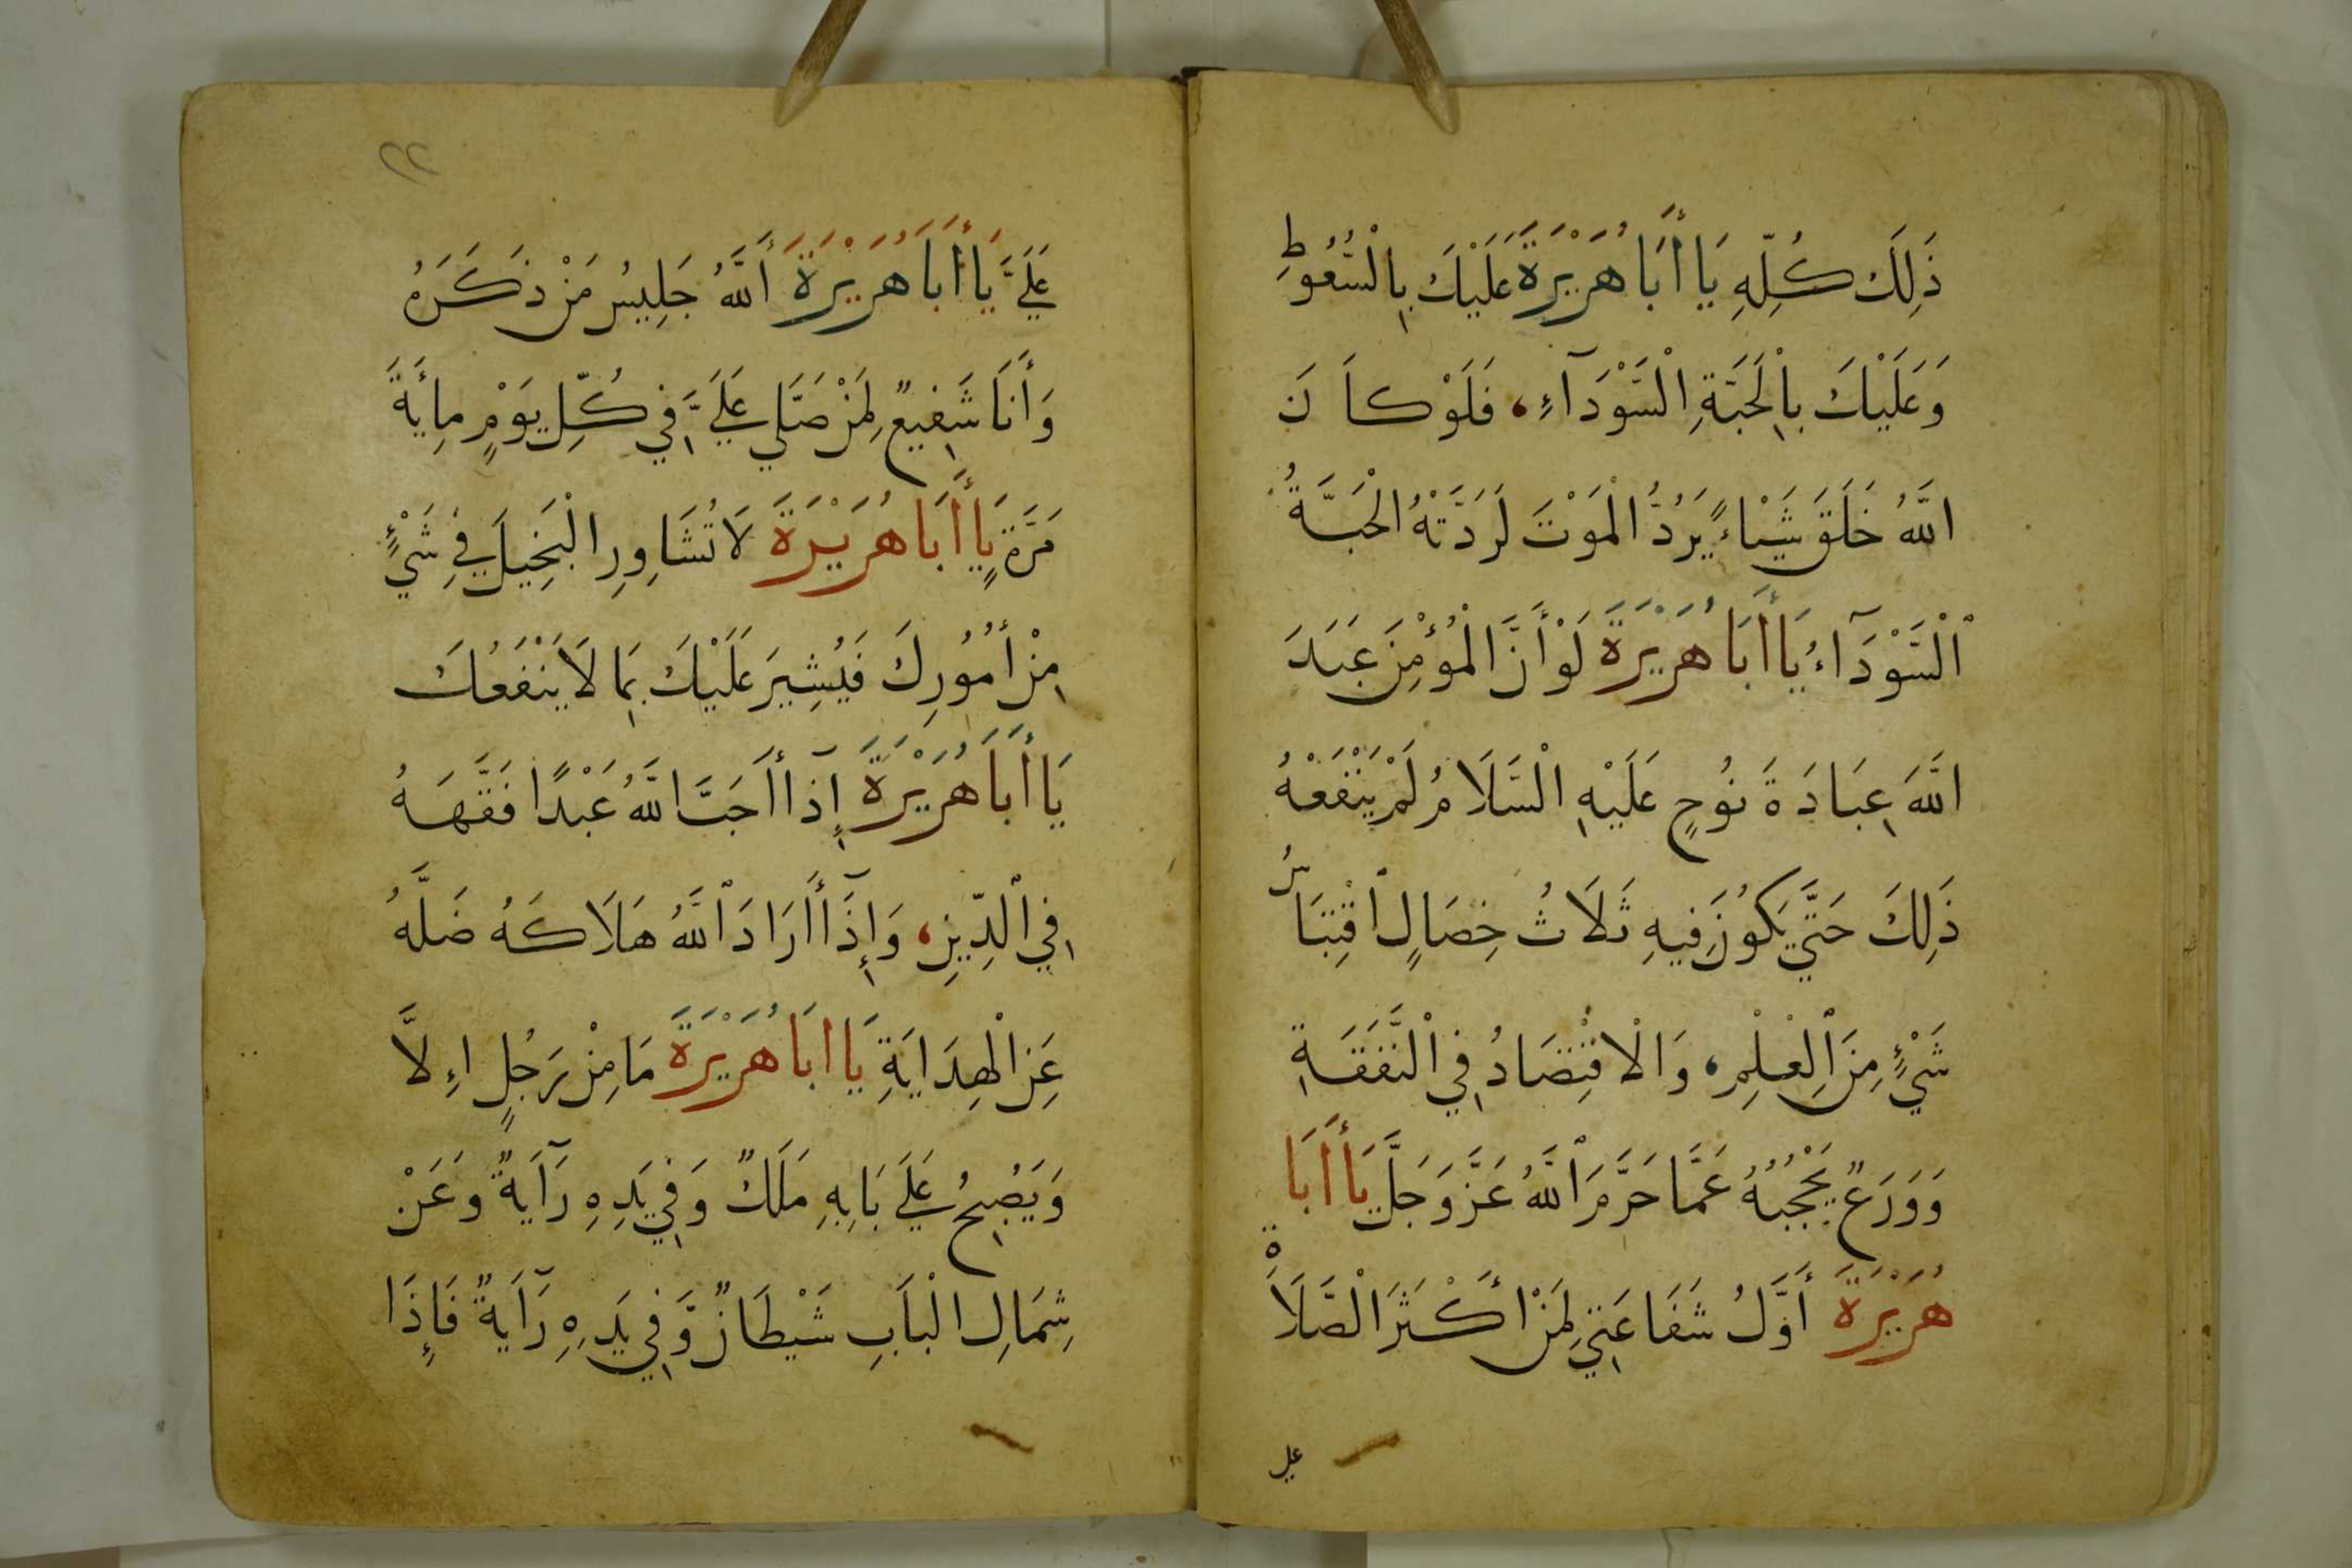 ذَلِكَ كُلِّهِ يَا أَبَا هُرَيْرَةَ عَلَيْكَ بِالْسُّعُوطِ
وَعَلَيْكَ بِالْحَبَّةِ الْسَّوْدَآءِ، فَلَوْ كَانَ
اللَّهُ خَلَقَ شَيْاءً يَرُدُّ الْمَوْتَ لَرَدَّتْهُ الْحَبَّةُ
اَلْسَّوْدَآءُ يَا أَبَا هُرَيْرَةَ لَوْ أَنَّ الْمُؤْمِنَ عَبَدَ
اللَّهَ عِبَادَةَ نُوحٍ عَلَيْهِ الْسَّلَامُ لَمْ يَنْفَعْهُ
ذَلِكَ حَتَّي يَكُونَ فِيهِ ثَلَاثُ خِصَالٍ اقْتِبَاسُ
شَيْءٍ مِنَ الْعِلْمِ، وَالْاقْتِصَادُ فِي الْنَّفَقَةِ
وَوَرَعٌ يَحْجُبُهُ عَمَّا حَرَّمَ اللَّهُ عَزَّ وَجَلَّ يَا أَبَا
هُرَيْرَةَ أَوَّلُ شَفَاعَتِي لِمَنْ أَكْثَرَ الْصَّلَاةِ
علي
٢٢
عَلَيَّ يَا أَبَا هُرَيْرَةَ أَللَّهُ جَلِيسُ مَنْ ذَكَرَهُ
وَأَنَا شَفِيعٌ لِمَنْ صَلَّي عَلَيَّ فِي كُلِّ يَوْمٍ مِأَيَةَ
مَرَّةٍ يَا أَبَا هُرَيْرَةَ لَا تُشَاوِرِ الْبَخِيلَ فِي شَيْءٍ
مِنْ أُمُورِكَ فَيُشِيرَ عَلَيْكَ بِمَا لَا يَنْفَعُكَ
يَا أَبَا هُرَيْرَةَ إِذَا أَحَبَّ اللَّهُ عَبْدًا فَقَّهَهُ
فِي الْدِّينِ، وَإِذَا أَرَادَ اللَّهُ هَلَاكَهُ ضَلَّهُ
عَنِ الْهِدَايَةِ يَا ابَا هُرَيْرَةَ مَا مِنْ رَجُلٍ اءِلَّا
وَيَصْبِحُ عَلَي بَابِهِ مَلَكٌ وَفِي يَدِهِ رَآيَةٌ وَعَنْ
شِمَالِ الْبَابِ شَيْطَانٌ وَّفِي يَدِهِ رَآيَةٌ فَإِذَا